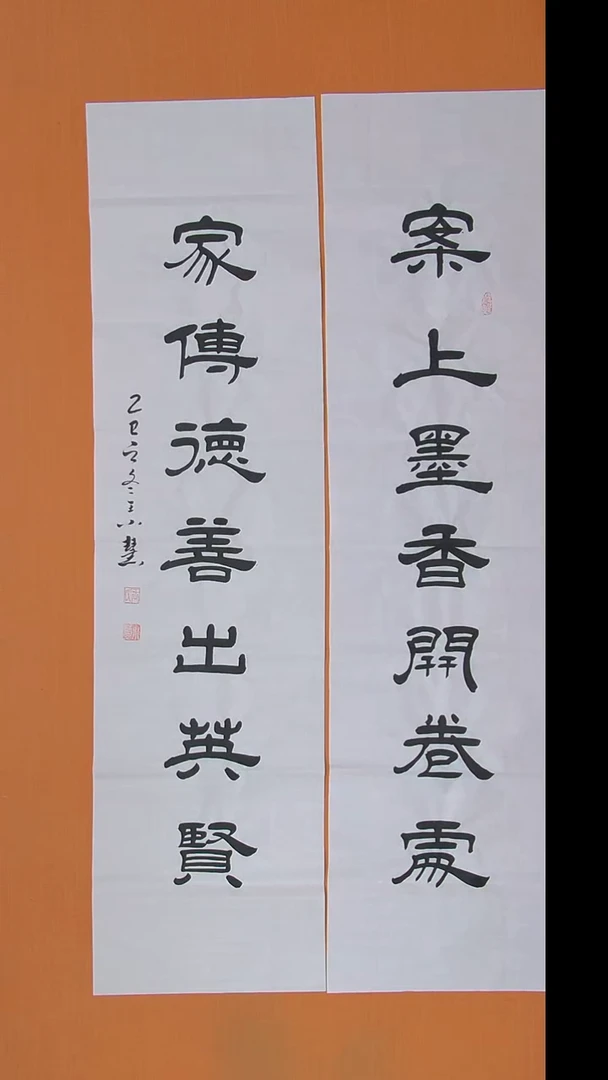 案上墨香開卷處
家傳德善出英賢
乙巳冬